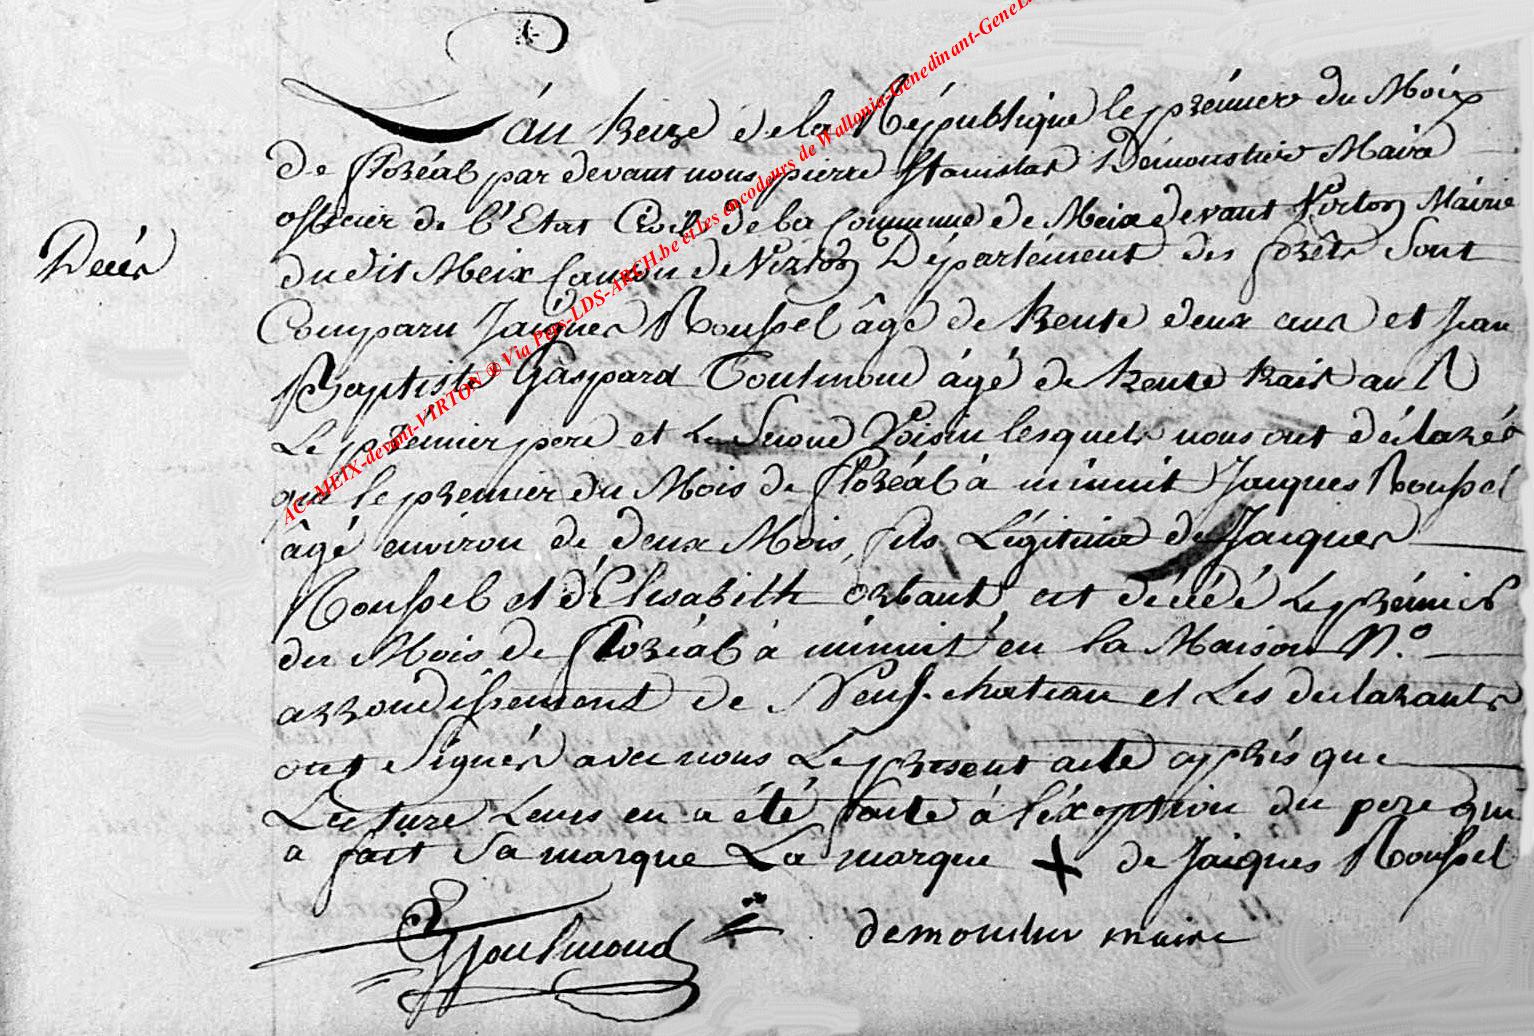 L'an treize de la République le prémier du Moix
de floréal par devant nous pierre stanislas Démoustier Maire
officier de l'Etat Civil de la Commune de Meix devant Virton Mairie
Décés
du dit Meix Canton de Virton Département des forêts Sont
Comparu Jacques Roussel âgé de trente deux ans et Jean
Baptiste Gaspard Toulmond âgé de trente trois ans
Le prémier pere et Le Second Voisin lesquels nous ont déclaréé
que le premier du Mois de floréal à minuit Jacques Roussel
âgé environ de deux Mois, fils Légitime de Jacques
Roussel et d'Elisabeth Orbant est décédé Le prémier
du Mois de floréal à minuit en la Maison N.º
arrondissement de Neuf-chateau et Les declarants
ont Signés avec nous Le present acte apprés que
Lecture Leurs en a été faite à l'éxeption du pere qui
a fait Sa marque La marque + de Jacques Roussel
Toulmond demoustier maire
AC-MEIX-devant-VIRTON ® Via Pers-LDS-ARCH.be et les encodeurs de Wallonia-Genedinant-GeneL